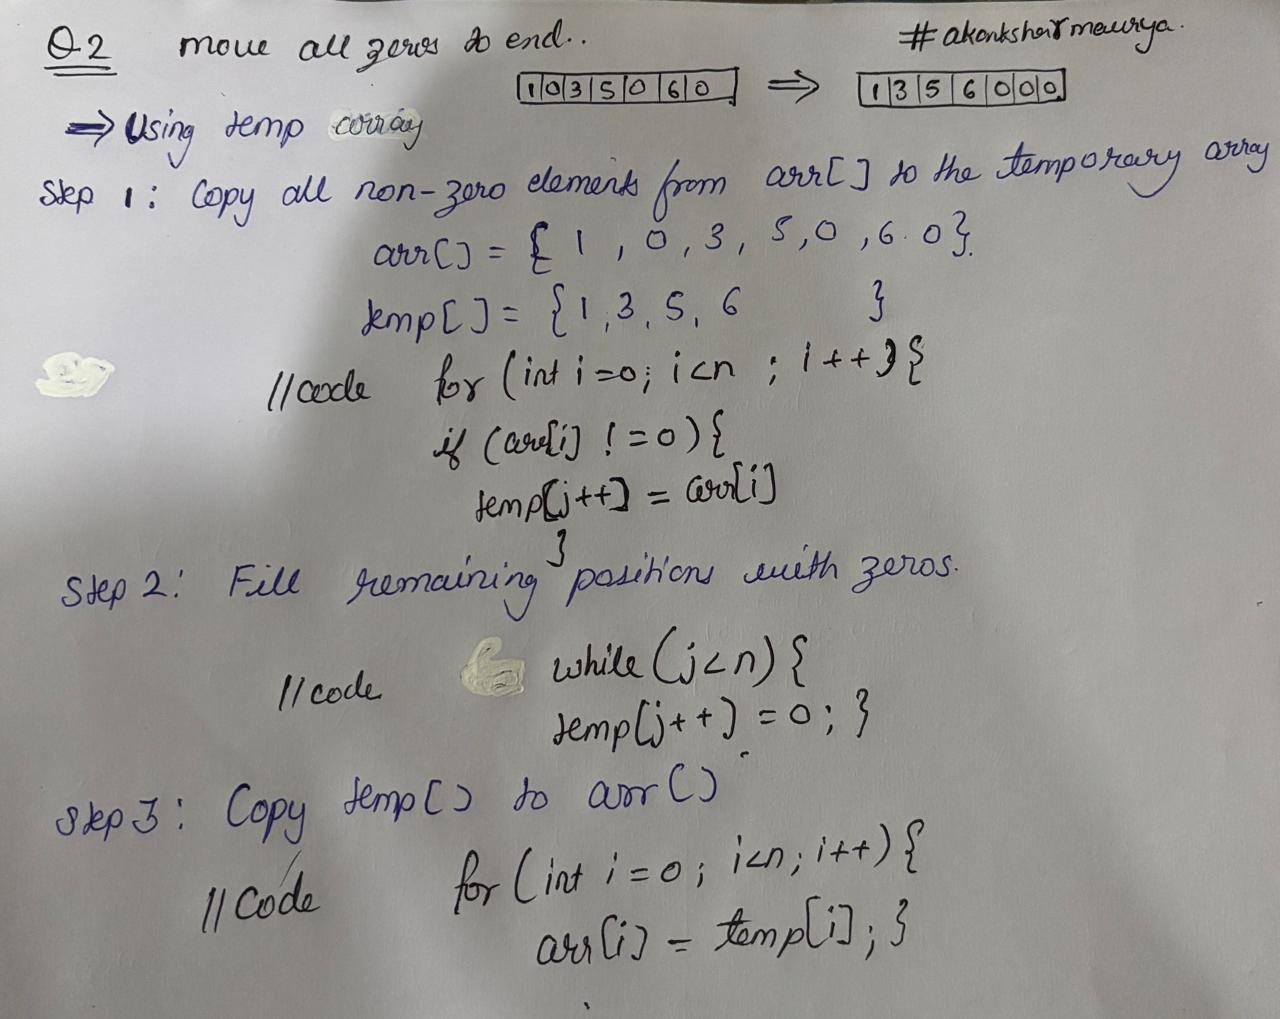 Q.2 move all zeros to end..
#akankshaxmaurya.
|1|0|3|5|0|6|0| ⇒ |1|3|5|6|0|0|0|
⇒ Using temp array
Step 1: Copy all non-zero elements from arr[] to the temporary array
arr[] = {1, 0, 3, 5, 0, 6. 0}.
temp[] = {1, 3, 5, 6 }
//code for (int i=0; i<n ; i++){
if (arr[i] != 0) {
temp[j++] = arr[i]
}
Step 2: Fill remaining positions with zeros.
//code while (j<n) {
temp[j++] = 0; }
Step 3: Copy temp[] to arr[]
//Code for (int i = 0; i<n; i++) {
arr[i] = temp[i]; }